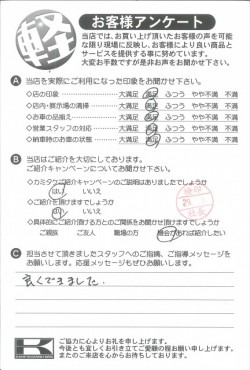 軽
お客様アンケート
当店では、お買い上げ頂いたお客様の声を可能
な限り現場に反映し、お客様により良い商品と
サービスを提供する事に努めています。
大変お手数ですが是非お声をお聞かせ下さい。
A 当店を実際にご利用になった印象をお聞かせ下さい。
◇店の印象 大満足 満足 ふつう やや不満 不満
◇店内・展示場の清掃 大満足 満足 ふつう やや不満 不満
◇お車の品揃え 大満足 満足 ふつう やや不満 不満
◇営業スタッフの対応 大満足 満足 ふつう やや不満 不満
◇納車時のお車の状態 大満足 満足 ふつう やや不満 不満
B 当店はご紹介を大切にしております。
ご紹介キャンペーンについてお聞かせ下さい。
◇カミタケご紹介キャンペーンのご説明はありましたでしょうか
はい いいえ
◇ご紹介を頂けますでしょうか
はい いいえ
◇具体的にご紹介頂ける方とのご関係をお聞かせ頂けますでしょうか
ご親族 ご友人 職場の方 機会があれば紹介したい
C 担当させて頂きましたスタッフへのご指摘、ご指導メッセージを
お願いします。応援メッセージもぜひお願いします。
良くできました。
K
ご協力に心よりお礼を申し上げます。
今後とも宜しくお引き立てご愛顧の程お願い申し上げます。
またのご来店を心からお待ちしております。